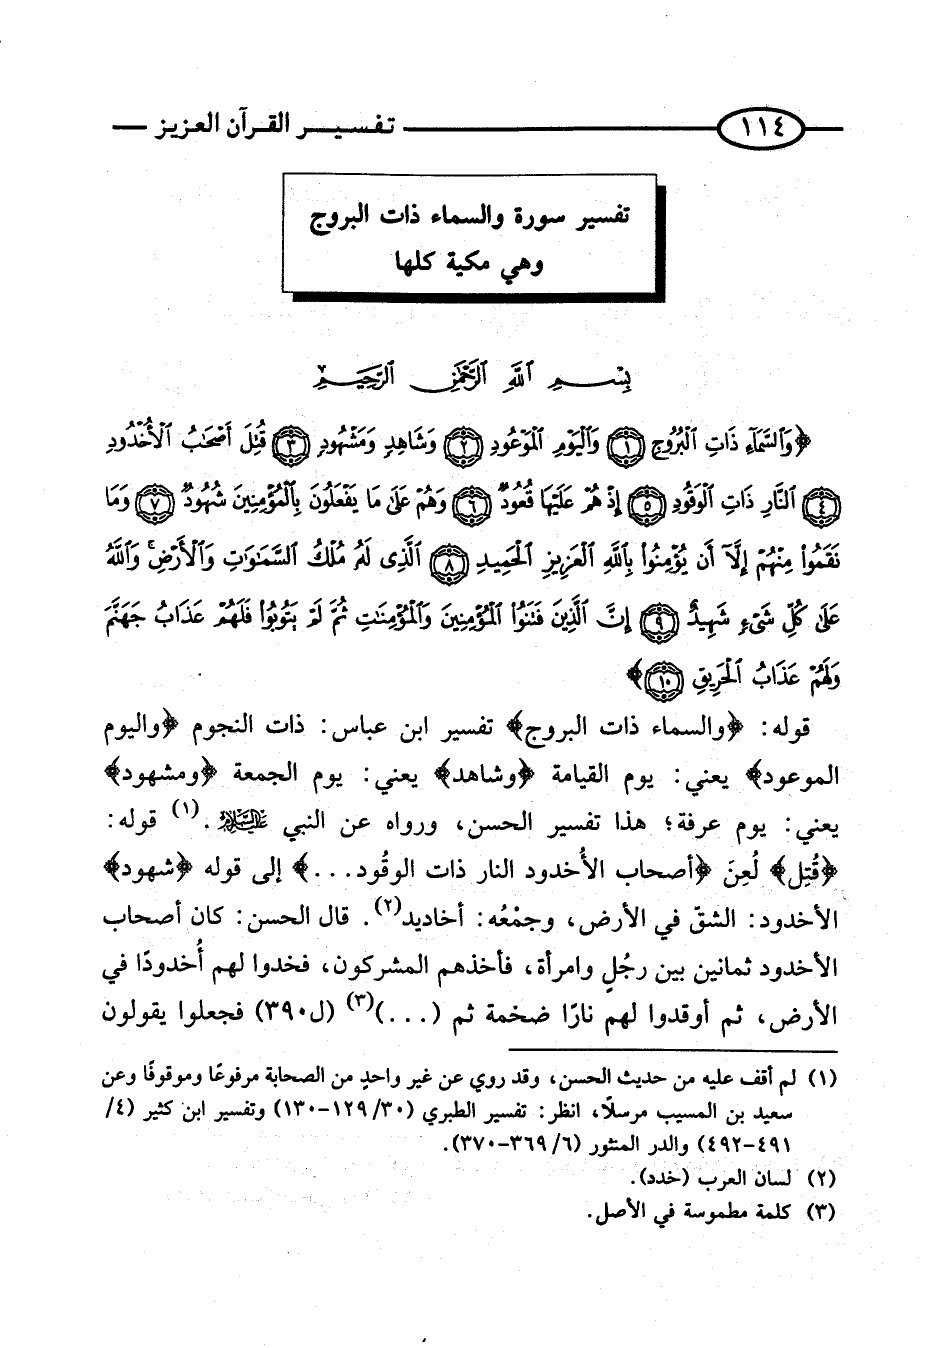 ١١٤ تفسير القرآن العزيز
تفسير سورة والسماء ذات البروج
وهي مكية كلها
بِسْمِ ٱللَّهِ ٱلرَّحْمَٰنِ ٱلرَّحِيمِ
﴿وَٱلسَّمَآءِ ذَاتِ ٱلْبُرُوجِ ۝١ وَٱلْيَوْمِ ٱلْمَوْعُودِ ۝٢ وَشَاهِدٍ وَمَشْهُودٍ ۝٣ قُتِلَ أَصْحَٰبُ ٱلْأُخْدُودِ
۝٤ ٱلنَّارِ ذَاتِ ٱلْوَقُودِ ۝٥ إِذْ هُمْ عَلَيْهَا قُعُودٌ ۝٦ وَهُمْ عَلَىٰ مَا يَفْعَلُونَ بِٱلْمُؤْمِنِينَ شُهُودٌ ۝٧ وَمَا
نَقَمُوا۟ مِنْهُمْ إِلَّآ أَن يُؤْمِنُوا۟ بِٱللَّهِ ٱلْعَزِيزِ ٱلْحَمِيدِ ۝٨ ٱلَّذِى لَهُۥ مُلْكُ ٱلسَّمَٰوَٰتِ وَٱلْأَرْضِ ۚ وَٱللَّهُ
عَلَىٰ كُلِّ شَىْءٍ شَهِيدٌ ۝٩ إِنَّ ٱلَّذِينَ فَتَنُوا۟ ٱلْمُؤْمِنِينَ وَٱلْمُؤْمِنَٰتِ ثُمَّ لَمْ يَتُوبُوا۟ فَلَهُمْ عَذَابُ جَهَنَّمَ
وَلَهُمْ عَذَابُ ٱلْحَرِيقِ ۝١٠﴾
قوله: ﴿والسماء ذات البروج﴾ تفسير ابن عباس: ذات النجوم ﴿واليوم
الموعود﴾ يعني: يوم القيامة ﴿وشاهد﴾ يعني: يوم الجمعة ﴿ومشهود﴾
يعني: يوم عرفة؛ هذا تفسير الحسن، ورواه عن النبي عليه السلام.(١) قوله:
﴿قُتِل﴾ لُعِنَ ﴿أصحاب الأُخدود النار ذات الوقُود...﴾ إلى قوله ﴿شهود﴾
الأخدود: الشقّ في الأرض، وجمْعُه: أخاديد(٢). قال الحسن: كان أصحاب
الأخدود ثمانين بين رجُلٍ وامرأة، فأخذهم المشركون، فخدوا لهم أُخدودًا في
الأرض، ثم أوقدوا لهم نارًا ضخمة ثم (...)(٣) (ل٣٩٠) فجعلوا يقولون
(١) لم أقف عليه من حديث الحسن، وقد روي عن غير واحدٍ من الصحابة مرفوعًا وموقوفًا وعن
سعيد بن المسيب مرسلًا، انظر: تفسير الطبري (٣٠/ ١٢٩-١٣٠) وتفسير ابن كثير (٤/
٤٩١-٤٩٢) والدر المنثور (٦/ ٣٦٩-٣٧٠).
(٢) لسان العرب (خدد).
(٣) كلمة مطموسة في الأصل.